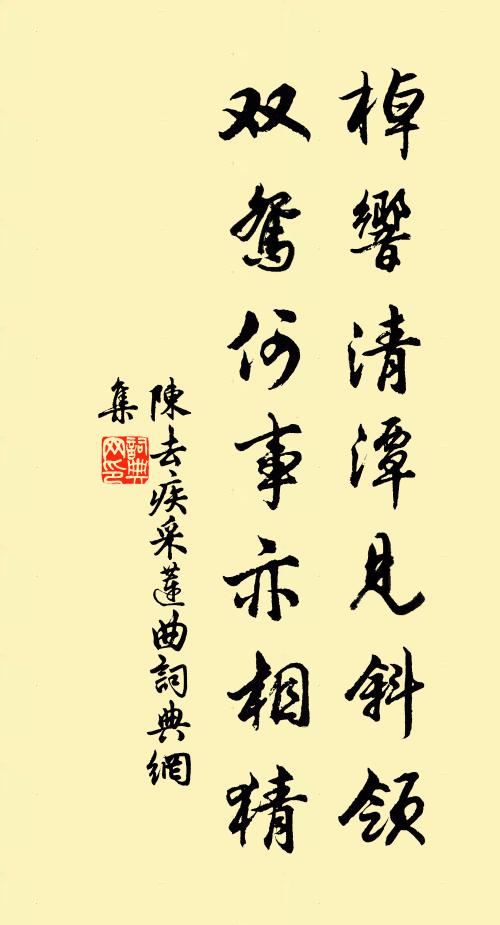 棹響清潭見斜領
双鴛何事亦相猜
陳去疾采蓮曲詞典網
集
詞典
网印